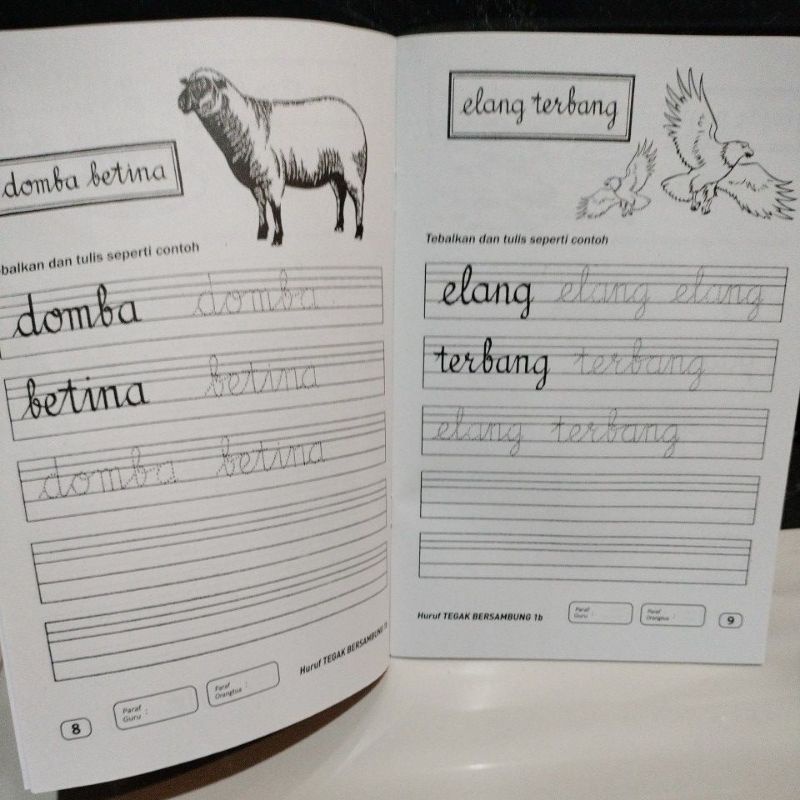 domba betina
balkan dan tulis seperti contoh
domba domba
betina betina
domba betina
Huruf TEGAK BERSAMBUNG
Paraf Guru :
Paraf Orangtua :
8
elang terbang
Tebalkan dan tulis seperti contoh
elang elang elang
terbang terbang
elang terbang
Huruf TEGAK BERSAMBUNG 1b
Paraf Guru :
Paraf Orangtua :
9